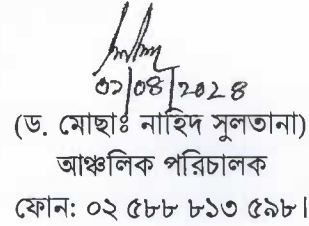 ০২/০৪/২০২৪
(ড. মোছাঃ নাহিদ সুলতানা)
আঞ্চলিক পরিচালক
ফোন: ০২ ৫৮৮ ৮১৩ ৫৯৮।